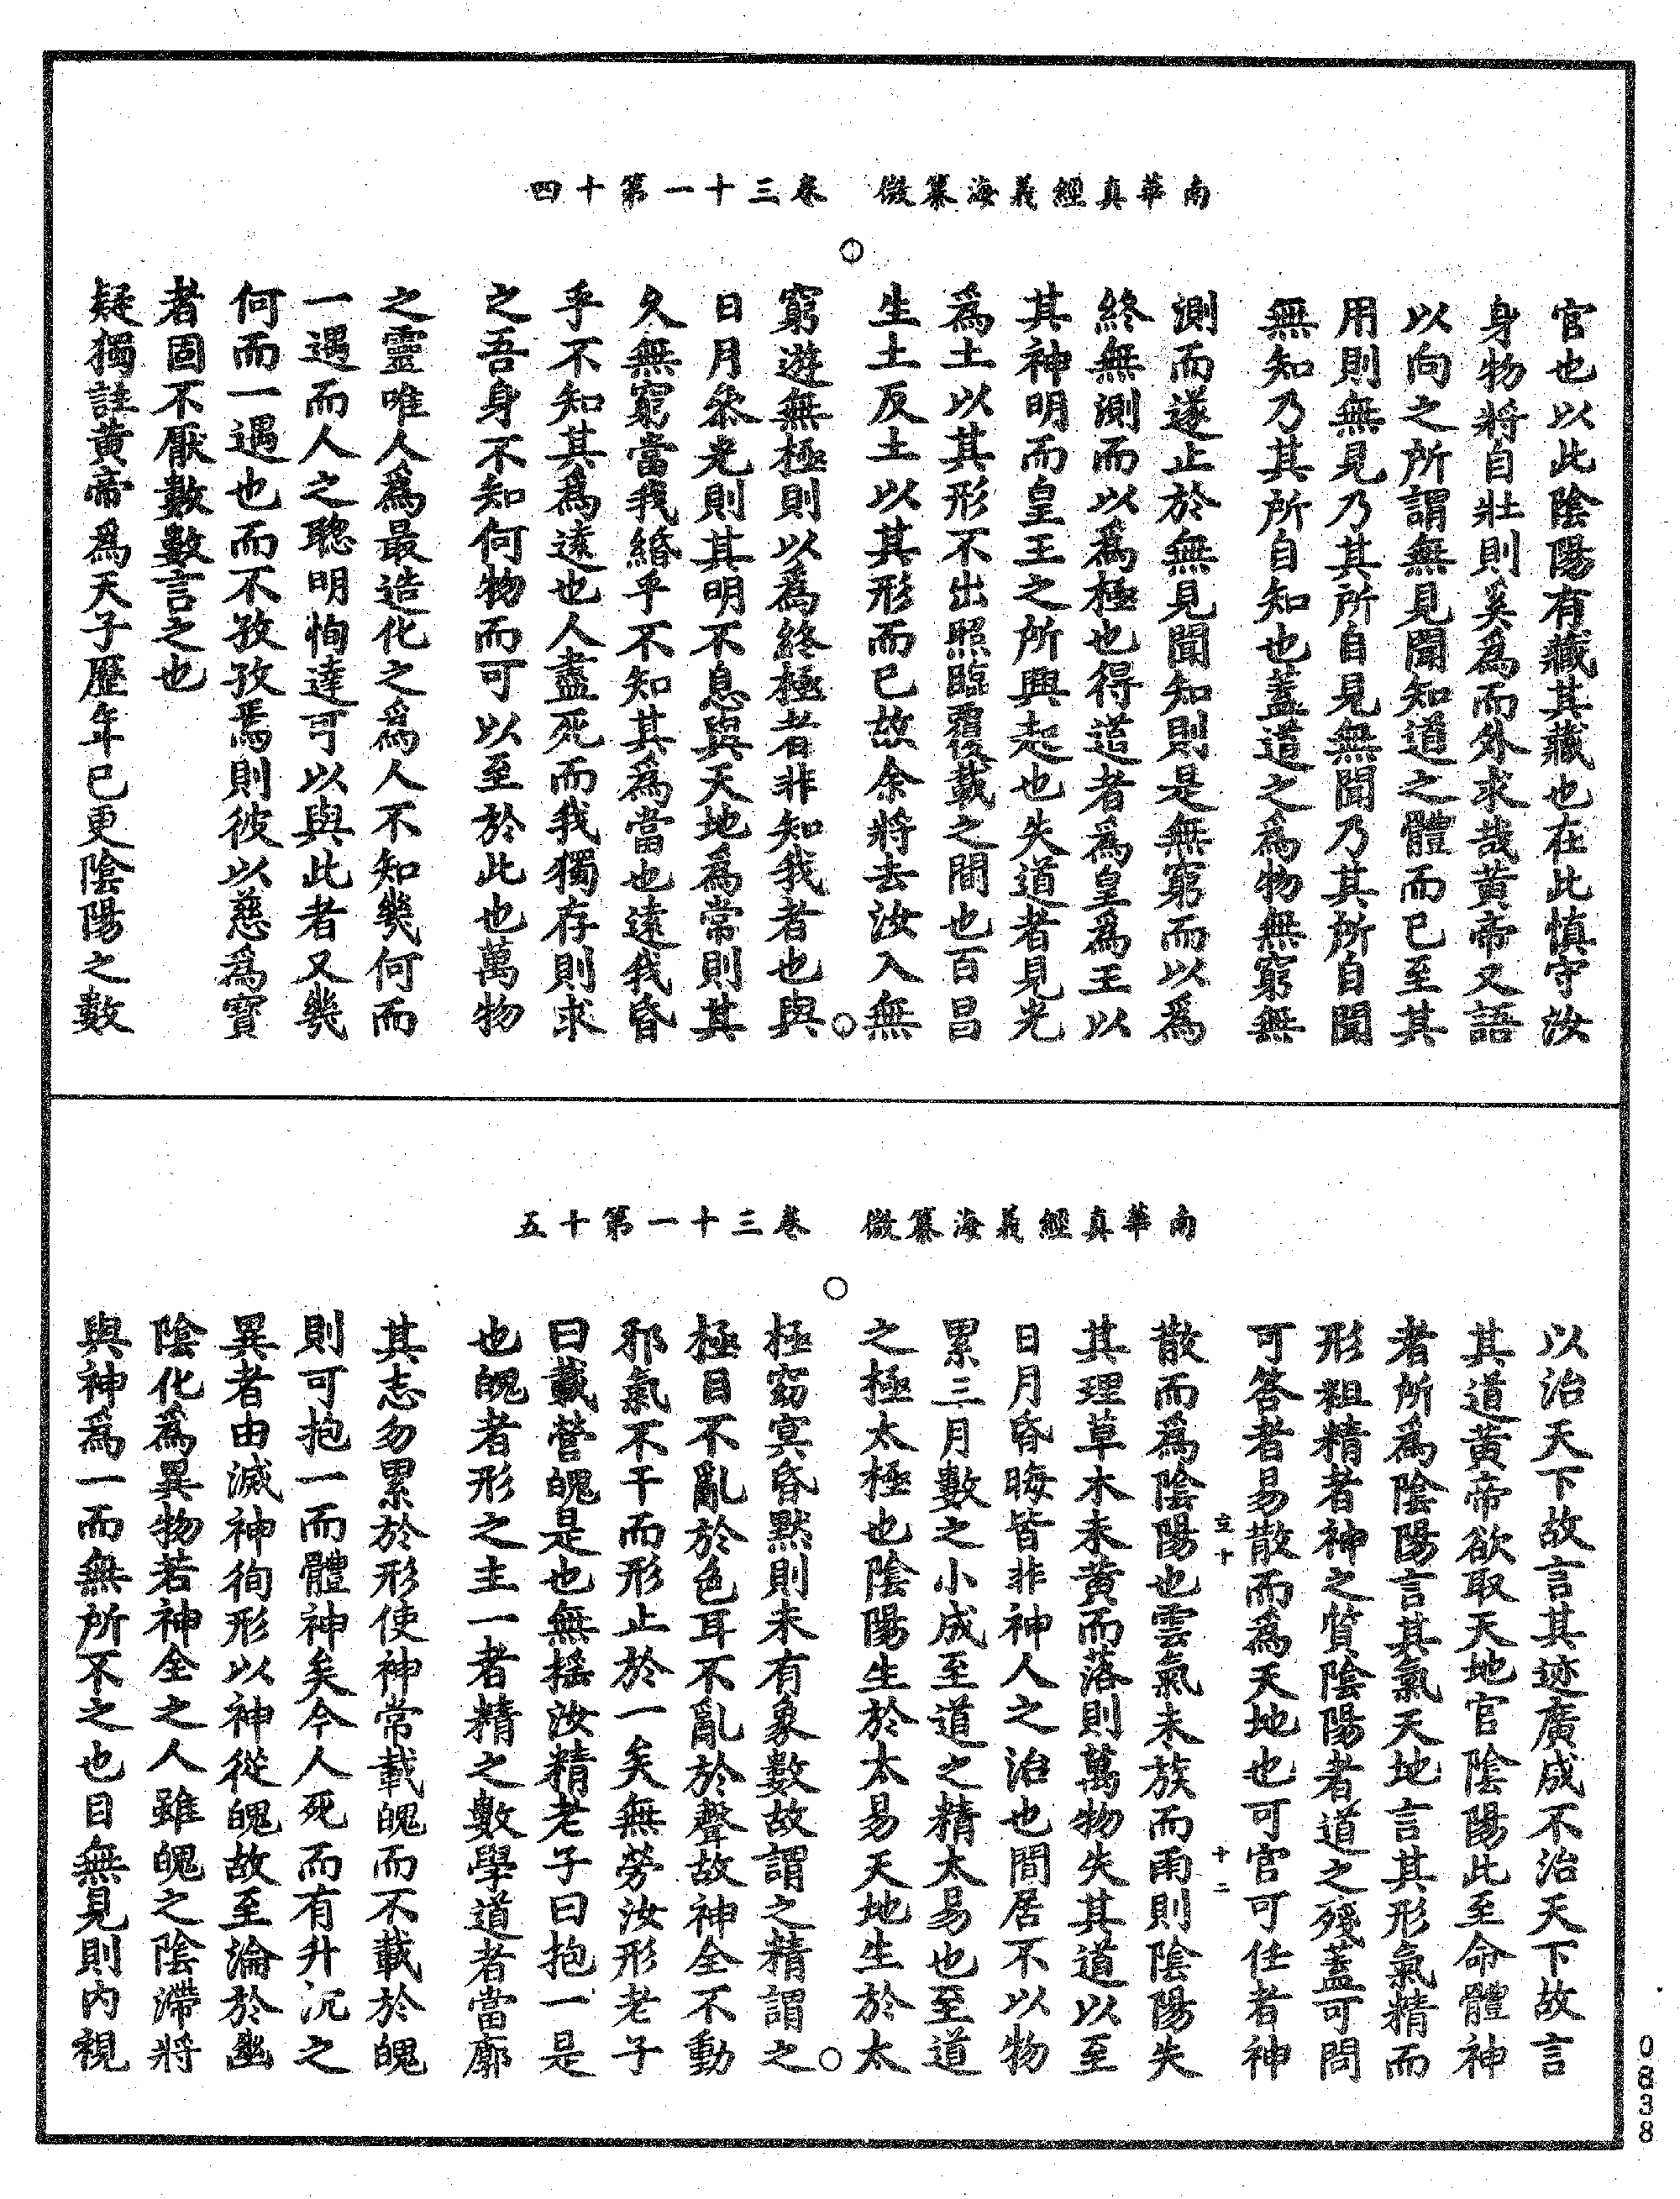 南華真經義海纂微　卷三十一第十四
官也以此陰陽有藏其藏也在此慎守汝
身物將自壯則奚爲而外求哉黄帝又語
以向之所謂無見聞知道之體而已至其
用則無見乃其所自見無聞乃其所自聞
無知乃其所自知也蓋道之爲物無窮無
測而遂止於無見聞知則是無窮而以爲
終無測而以爲極也得道者爲皇爲王以
其神明而皇王之所興起也失道者見光
爲土以其形不出照臨覆載之間也百昌
生土反土以其形而已故余將去汝入無
窮遊無極則以爲終極者非知我者也與
日月叅光則其明不息與天地爲常則其
久無窮當我緡乎不知其爲當也遠我昏
乎不知其爲遠也人盡死而我獨存則求
之吾身不知何物而可以至於此也萬物
之靈唯人爲最造化之爲人不知幾何而
一遇而人之聰明恂達可以與此者又幾
何而一遇也而不孜孜焉則彼以慈爲寶
者固不厭數數言之也
疑獨註黄帝爲天子歷年已更陰陽之數
南華真經義海纂微　卷三十一第十五
以治天下故言其迹廣成不治天下故言
其道黄帝欲取天地官陰陽此至命體神
者所爲陰陽言其氣天地言其形氣精而
形粗精者神之質陰陽者道之殘蓋可問
可答者易散而為天地也可官可任者神
立十　十二
散而爲陰陽也雲氣未族而雨則陰陽失
其理草木未黄而落則萬物失其道以至
日月昏晦皆非神人之治也間居不以物
累三月數之小成至道之精太易也至道
之極太極也陰陽生於太易天地生於太
極窈冥昏默則未有象數故謂之精謂之
極目不亂於色耳不亂於聲故神全不動
邪氣不干而形止於一矣無勞汝形老子
曰載營魄是也無揺汝精老子曰抱一是
也魄者形之主一者精之數學道者當廓
其志勿累於形使神常載魄而不載於魄
則可抱一而體神矣今人死而有升沉之
異者由滅神徇形以神從魄故至淪於幽
陰化爲異物若神全之人雖魄之陰滯將
與神爲一而無所不之也目無見則内視
0838